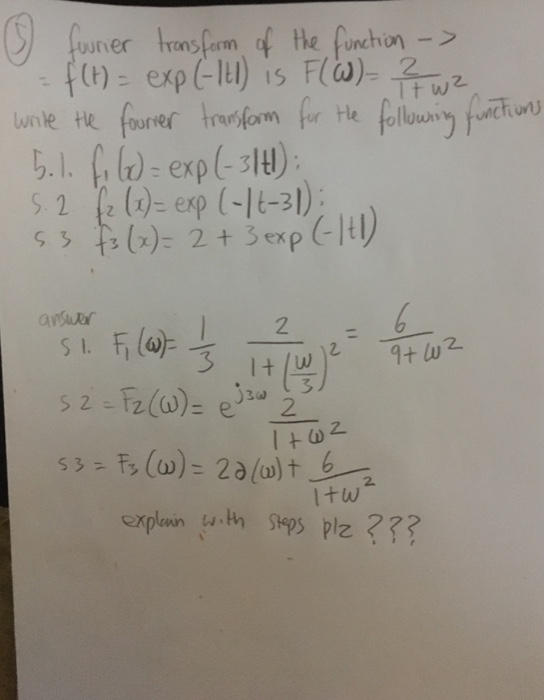 5 fourier transform of the function ->
= f(t) = exp(-|t|) is F(ω) = 2/(1+ω²)
write the fourier transform for the following functions
5.1. f₁(x) = exp(-3|t|);
5.2 f₂(x) = exp(-|t-3|);
5.3 f₃(x) = 2 + 3exp(-|t|)
answer
5 1. F₁(ω) = 1/3 2/(1+(ω/3)²) = 6/(9+ω²)
5 2 = F₂(ω) = e^(j3ω) 2/(1+ω²)
5 3 = F₃(ω) = 2∂(ω) + 6/(1+ω²)
explain with steps plz ???